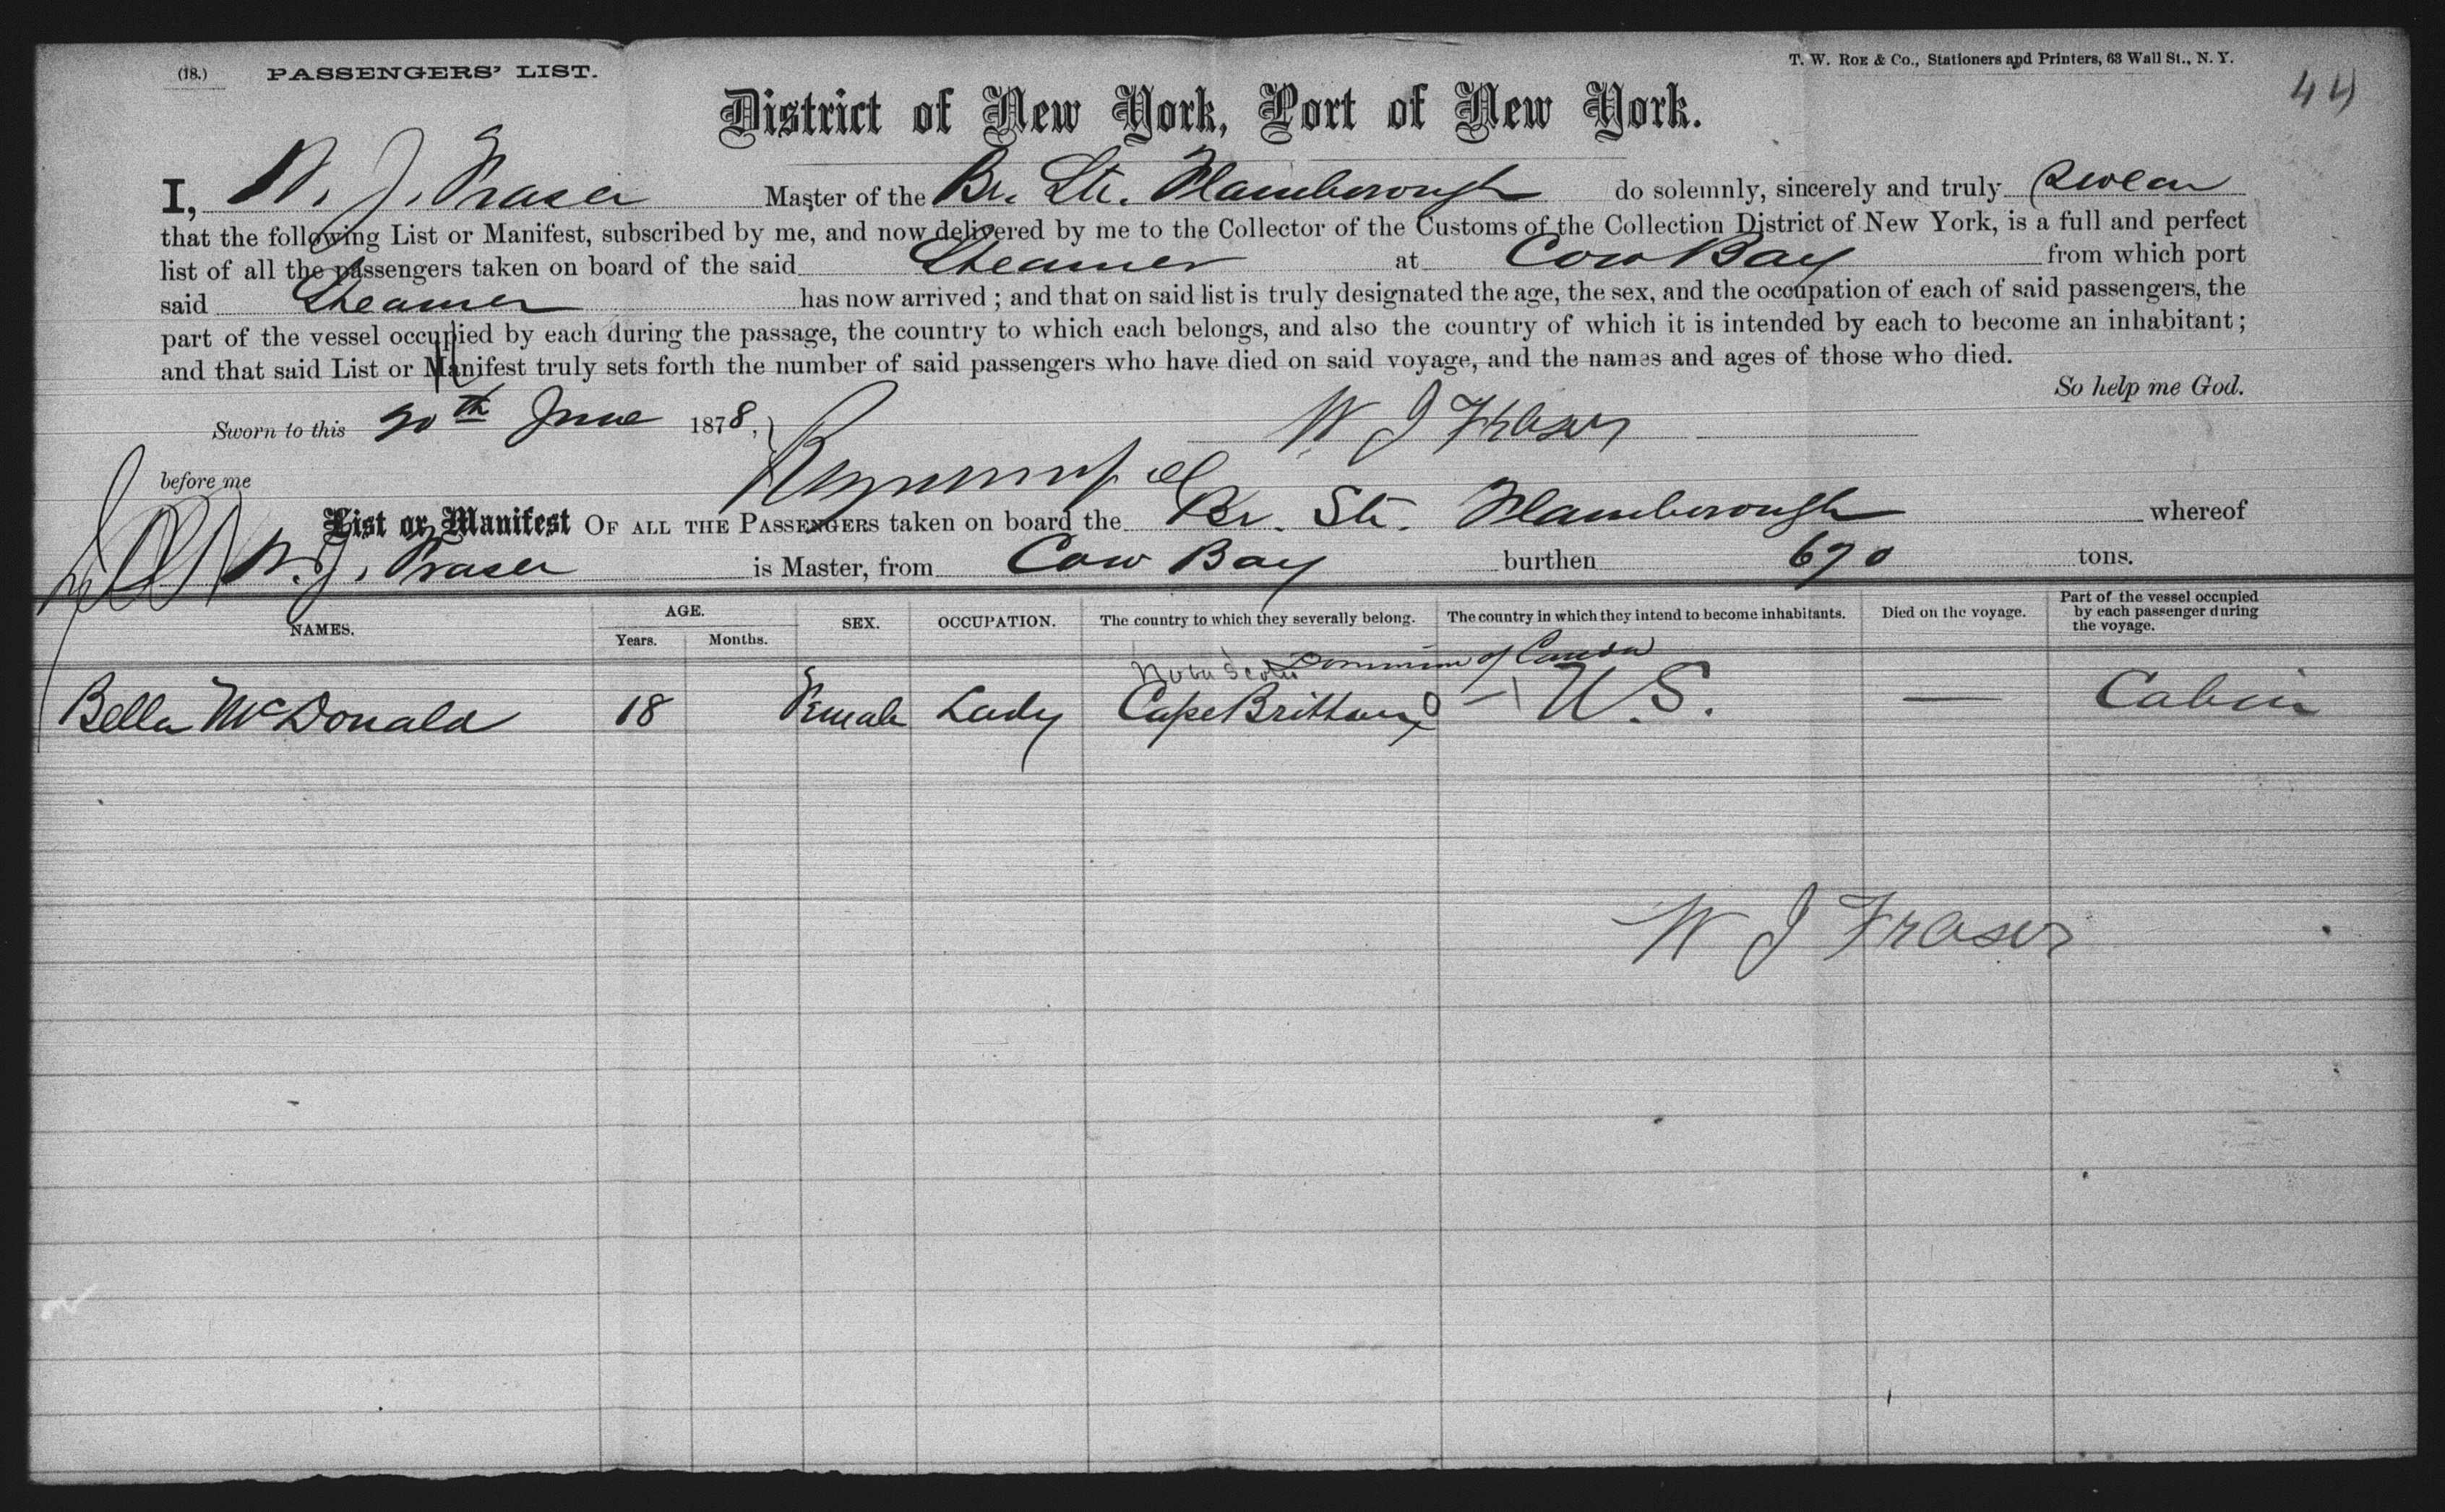 (18.) PASSENGERS' LIST.
T. W. ROE & Co., Stationers and Printers, 63 Wall St., N. Y.
44
District of New York, Port of New York.
I, W. J. Fraser Master of the Br. Str. Flamborough do solemnly, sincerely and truly swear
that the following List or Manifest, subscribed by me, and now delivered by me to the Collector of the Customs of the Collection District of New York, is a full and perfect
list of all the passengers taken on board of the said Steamer at Cow Bay from which port
said Steamer has now arrived ; and that on said list is truly designated the age, the sex, and the occupation of each of said passengers, the
part of the vessel occupied by each during the passage, the country to which each belongs, and also the country of which it is intended by each to become an inhabitant ;
and that said List or Manifest truly sets forth the number of said passengers who have died on said voyage, and the names and ages of those who died.
So help me God.
Sworn to this 20th June 1878,
W J Fraser
before me
List or Manifest OF ALL THE PASSENGERS taken on board the Br. Str. Flamborough whereof
W. J. Fraser is Master, from Cow Bay burthen 670 tons.
NAMES. AGE. Years. Months. SEX. OCCUPATION. The country to which they severally belong. The country in which they intend to become inhabitants. Died on the voyage. Part of the vessel occupied by each passenger during the voyage.
Nova Scotia Dominion of Canada
Bella McDonald 18 Female Lady Cape Brittany U.S. — Cabin
W J Fraser